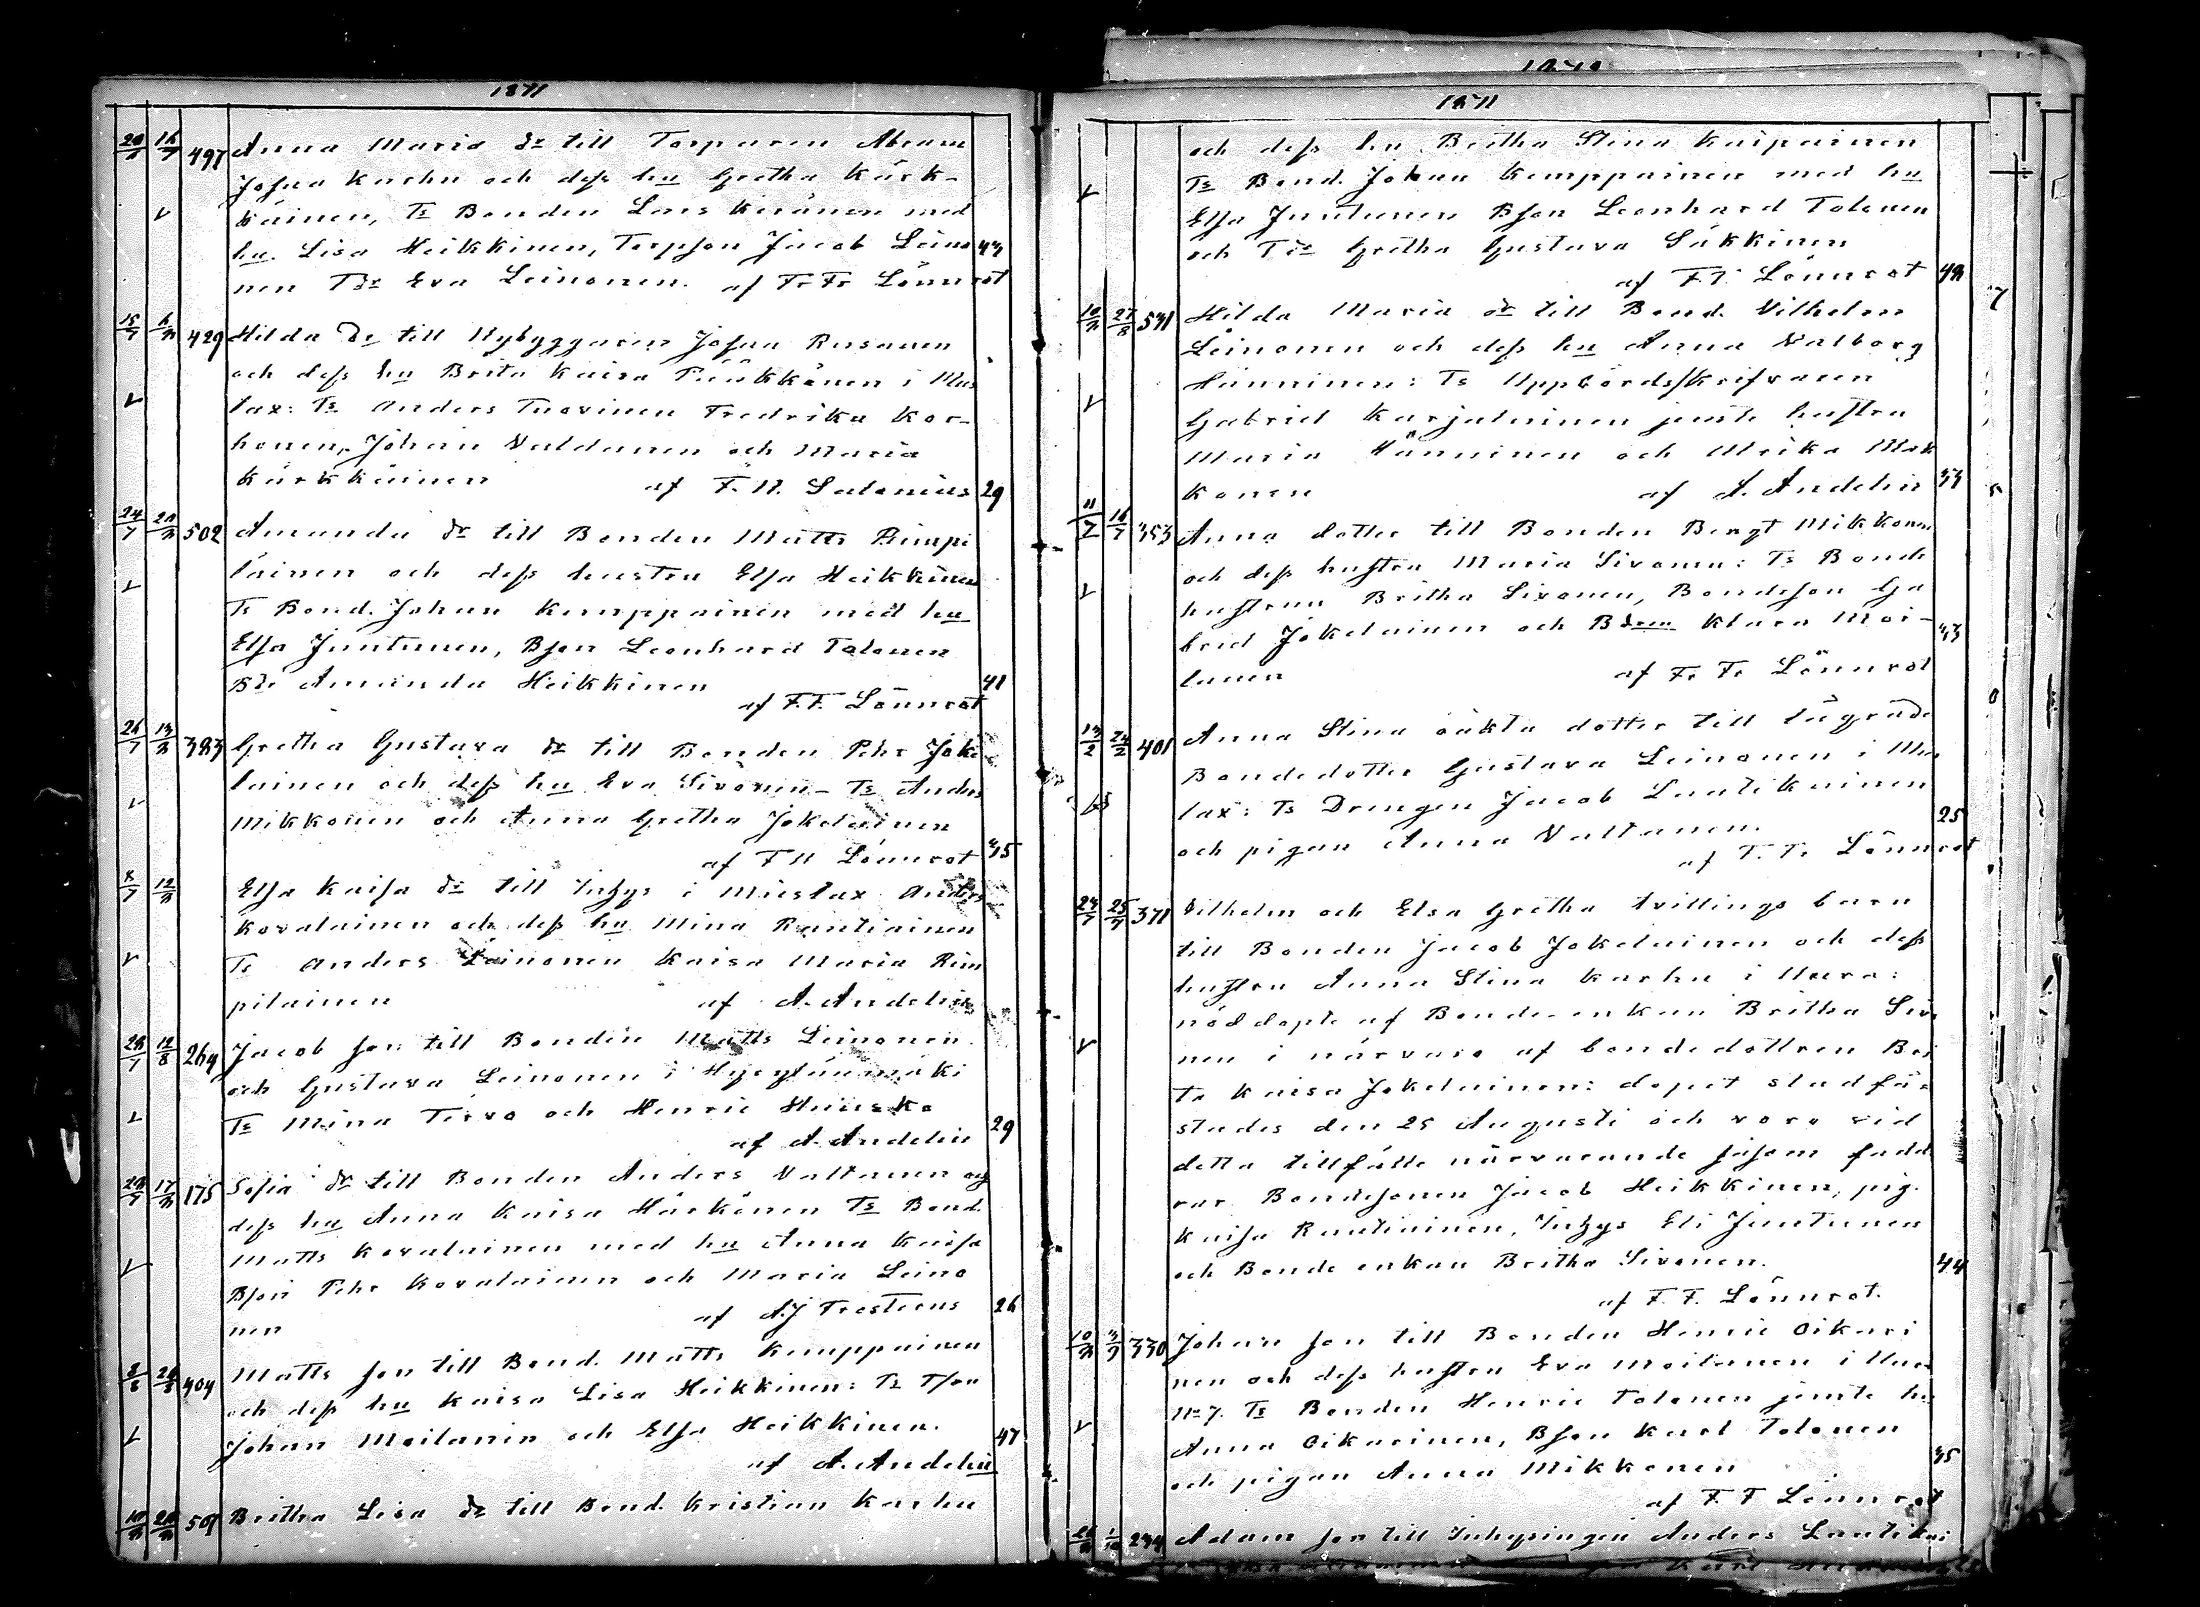 1871
20/6 16/7 497 Anna Maria dr till Torparen Abram
Johan Karhu och dess hu Gretha Kärk-
käinen, Ts Bonden Lars Keränen med
hu. Lisa Heikkinen, Torpson Jacob Leino 43
nen Tdr Eva Leinonen. af Fr. Fr. Lönnrot
15/7 6/8 429 Hilda dr till Nybyggaren Johan Rusanen
och dess hu Brita Kaisa Pääkkönen i Mus
lax: Ts Anders Tuovinen Fredrika Kor-
honen, Johan Valdanen och Maria
Kärkkäinen af F. W. Salonius 29
24/7 20/8 502 Amanda dr till Bonden Matts Rimpi
läinen och dess hustru Elsa Heikkinen
Ts Bond. Johan Kemppainen med hu
Elsa Juntunen, Bson Leonhard Tolonen
Bdr Amanda Heikkinen 41
af F. F. Lönnrot
26/7 13/8 383 Gretha Gustava dr till Bonden Pehr Joke
lainen och dess hu Eva Sivonen - Ts Anders
Mikkonen och Anna Gretha Jokelainen
af F Lönnrot 35
8/7 12/8 Elsa Kaisa dr till Inhys i Mieslax Anders
Kovalainen och dess hu Mina Rautiainen
Ts Anders Leinonen Kaisa Maria Rim
piläinen af A. Andelin
28/7 12/8 264 Jacob son till Bonden Matts Leinonen
och Gustava Leinonen i Hyrylänmäki
Ts Mina Tervo och Henric 29
af A. Andelin
28/7 17/8 175 Sofia dr till Bonden Anders Valtanen och
dess hu Anna Kaisa Härkönen Ts Bond.
Matts Kovalainen med hu Anna Kaisa
Bson Pehr Kovalainen och Maria Leino
nen af A. J Frosterus 26
2/8 26/8 404 Matts son till Bond. Matts Kemppainen
och dess hu Kaisa Lisa Heikkinen: Ts Tson
Johan Moilanen och Elsa Heikkinen. 47
af A. Andelin
10/8 20/8 509 Britha Lisa dr till Bond. Kristian Karhu
1871
och dess hu Britha Stina Kaipainen
Ts Bond. Johan Kemppainen med hu
Elsa Juntunen Bson Leonhard Tolonen
och Tdr Gretha Gustava Säkkinen
af F. F. Lönnrot 42
10/8 27/8 531 Hilda Maria dr till Bond. Vilhelm
Leinonen och dess hu Anna Valborg
Hänninen: Ts Uppbördsskrifvaren
Gabriel Karjalainen jemte hustru
Maria Hänninen och Ulrika Mok
konen af A. Andelin 33
11/7 16/7 353 Anna dotter till Bonden Bengt Mikkonen
och dess hustru Maria Sivonen: Ts Bonde
hustrun Britha Sivonen, Bondeson Ga
briel Jokelainen och Bdren Klara Moi- 33
lanen af Fr. Fr. Lönnrot
13/2 24/2 401 Anna Stina oäkta dotter till lägrade
Bondedotter Gustava Leinonen i Mus
lax: Ts Drengen Jacob Lautikainen
och pigan Anna Valtanen. 25
af F. Fr. Lönnrot
24/7 25/7 371 Vilhelm och Elsa Gretha tvillings barn
till Bonden Jacob Jokelainen och dess
hustru Anna Stina Karhu i Uura:
nöddopte af Bonde-enkan Britha Sivo
nen i närvaro af bondedottren Bri
ta Kaisa Jokelainen: dopet stadfä-
stades den 25 Augusti och voro vid
detta tillfälle närvarande såsom fadd
rar Bondesonen Jacob Heikkinen, pig.
Kaisa Rautiainen, Inhys Eli Juntunen
och Bonde enkan Britha Sivonen. 44
af F. F. Lönnrot.
10/8 3/9 330 Johan son till Bonden Henric Oikari
nen och dess hustru Eva Moilanen i Uura
No 7. Ts Bonden Henric Tolonen jemte hu
Anna Oikarinen, Bson Karl Tolonen
och pigan Anna Mikkonen 35
af F. F Lönnrot
1/10 294 Adam son till Inhysingen Anders Lautikai